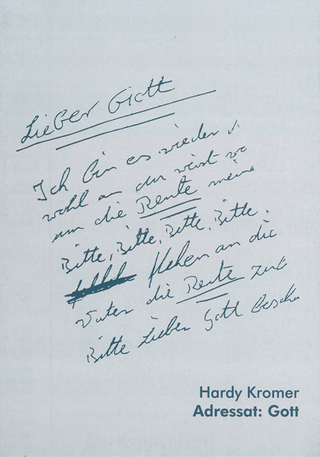 Lieber Gott
Ich bin es wieder
wohl an du wirst
um die Rente meine
Bitte, Bitte, Bitte, Bitte
flehen an die
Vater die Rente
Bitte Lieber Gott
Hardy Kromer
Adressat: Gott